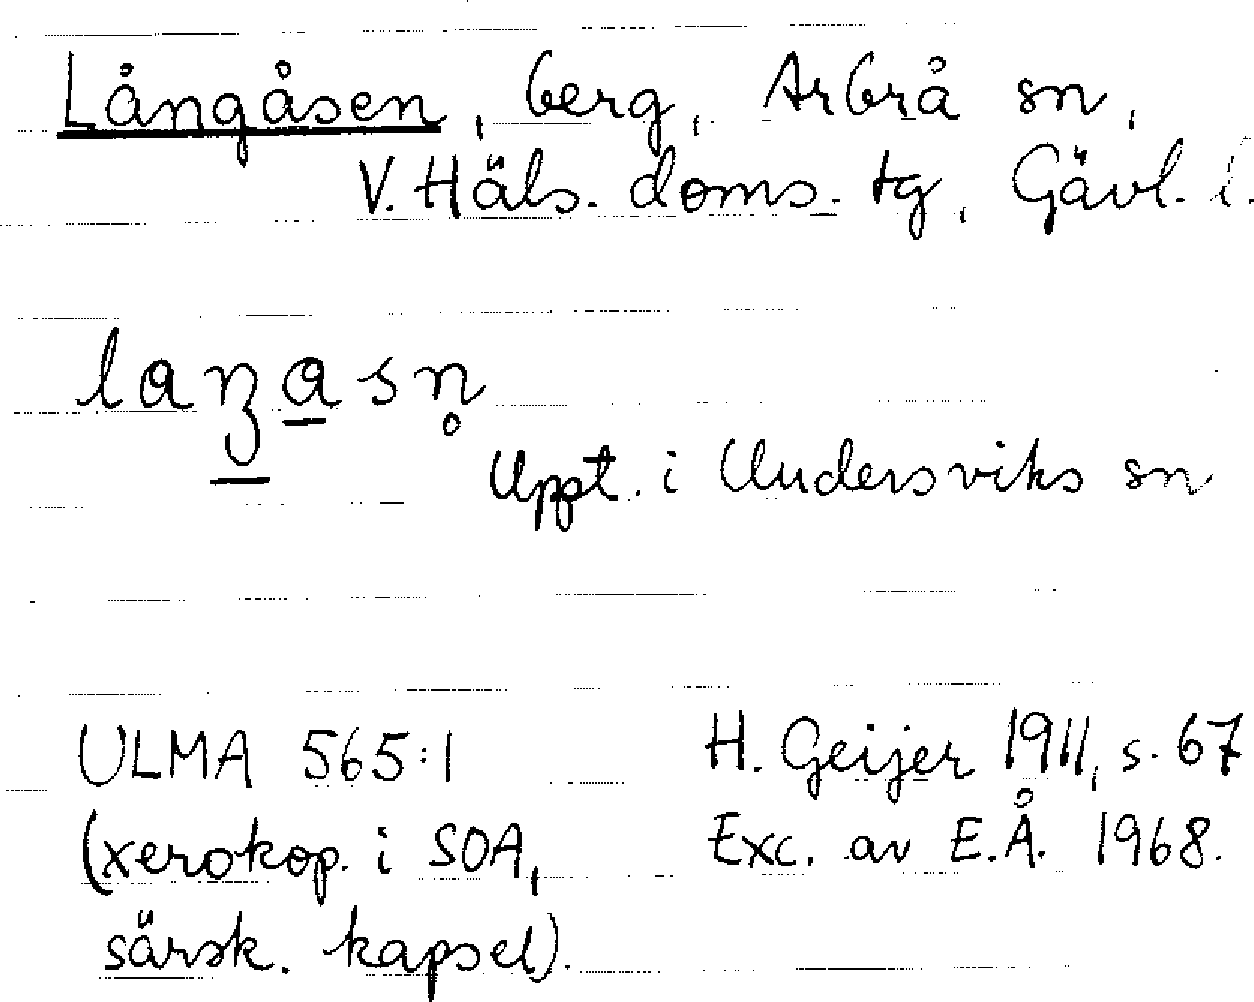 Långåsen, berg, Arbrå sn,
V. Häls. doms. tg, Gävl. l.
laŋasn̥
Uppt. i Undersviks sn
ULMA 565:1
(xerokop. i SOA,
särsk. kapsel).
H. Geijer 1911, s. 67
Exc. av E.Å. 1968.